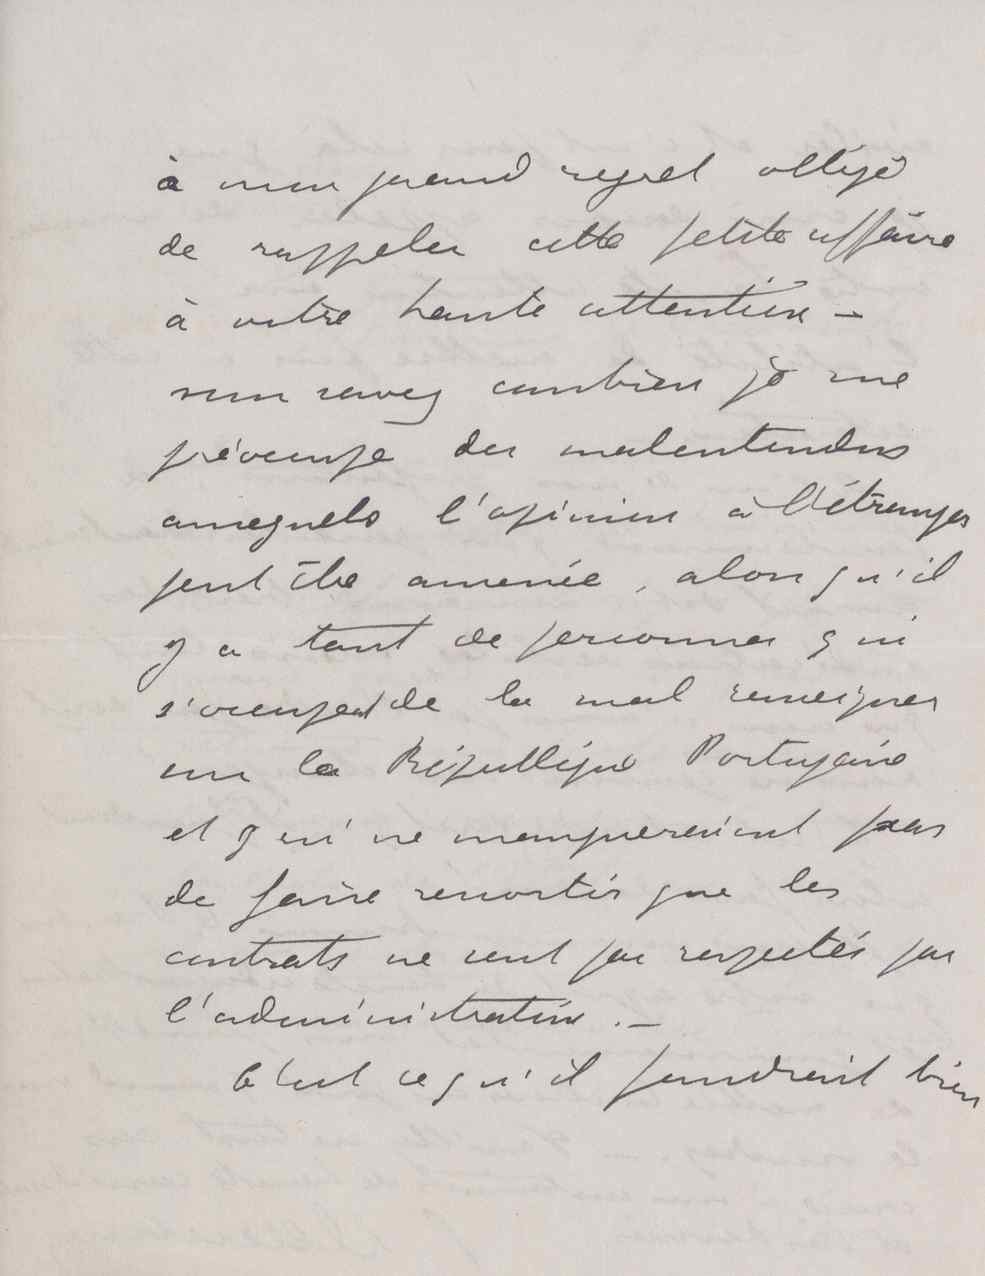 à mon grand regret obligé
de rappeler cette petite affaire
à votre haute attention –
vous savez combien je me
préoccupe des malentendus
auxquels l'opinion à l'étranger
peut être amenée, alors qu'il
y a tant de personnes qui
s'occupent de la mal renseigner
sur la République Portugaise
et qui ne manqueraient pas
de faire ressortir que les
contrats ne sont pas respectés par
l'administration. –
C'est ce qu'il faudrait bien